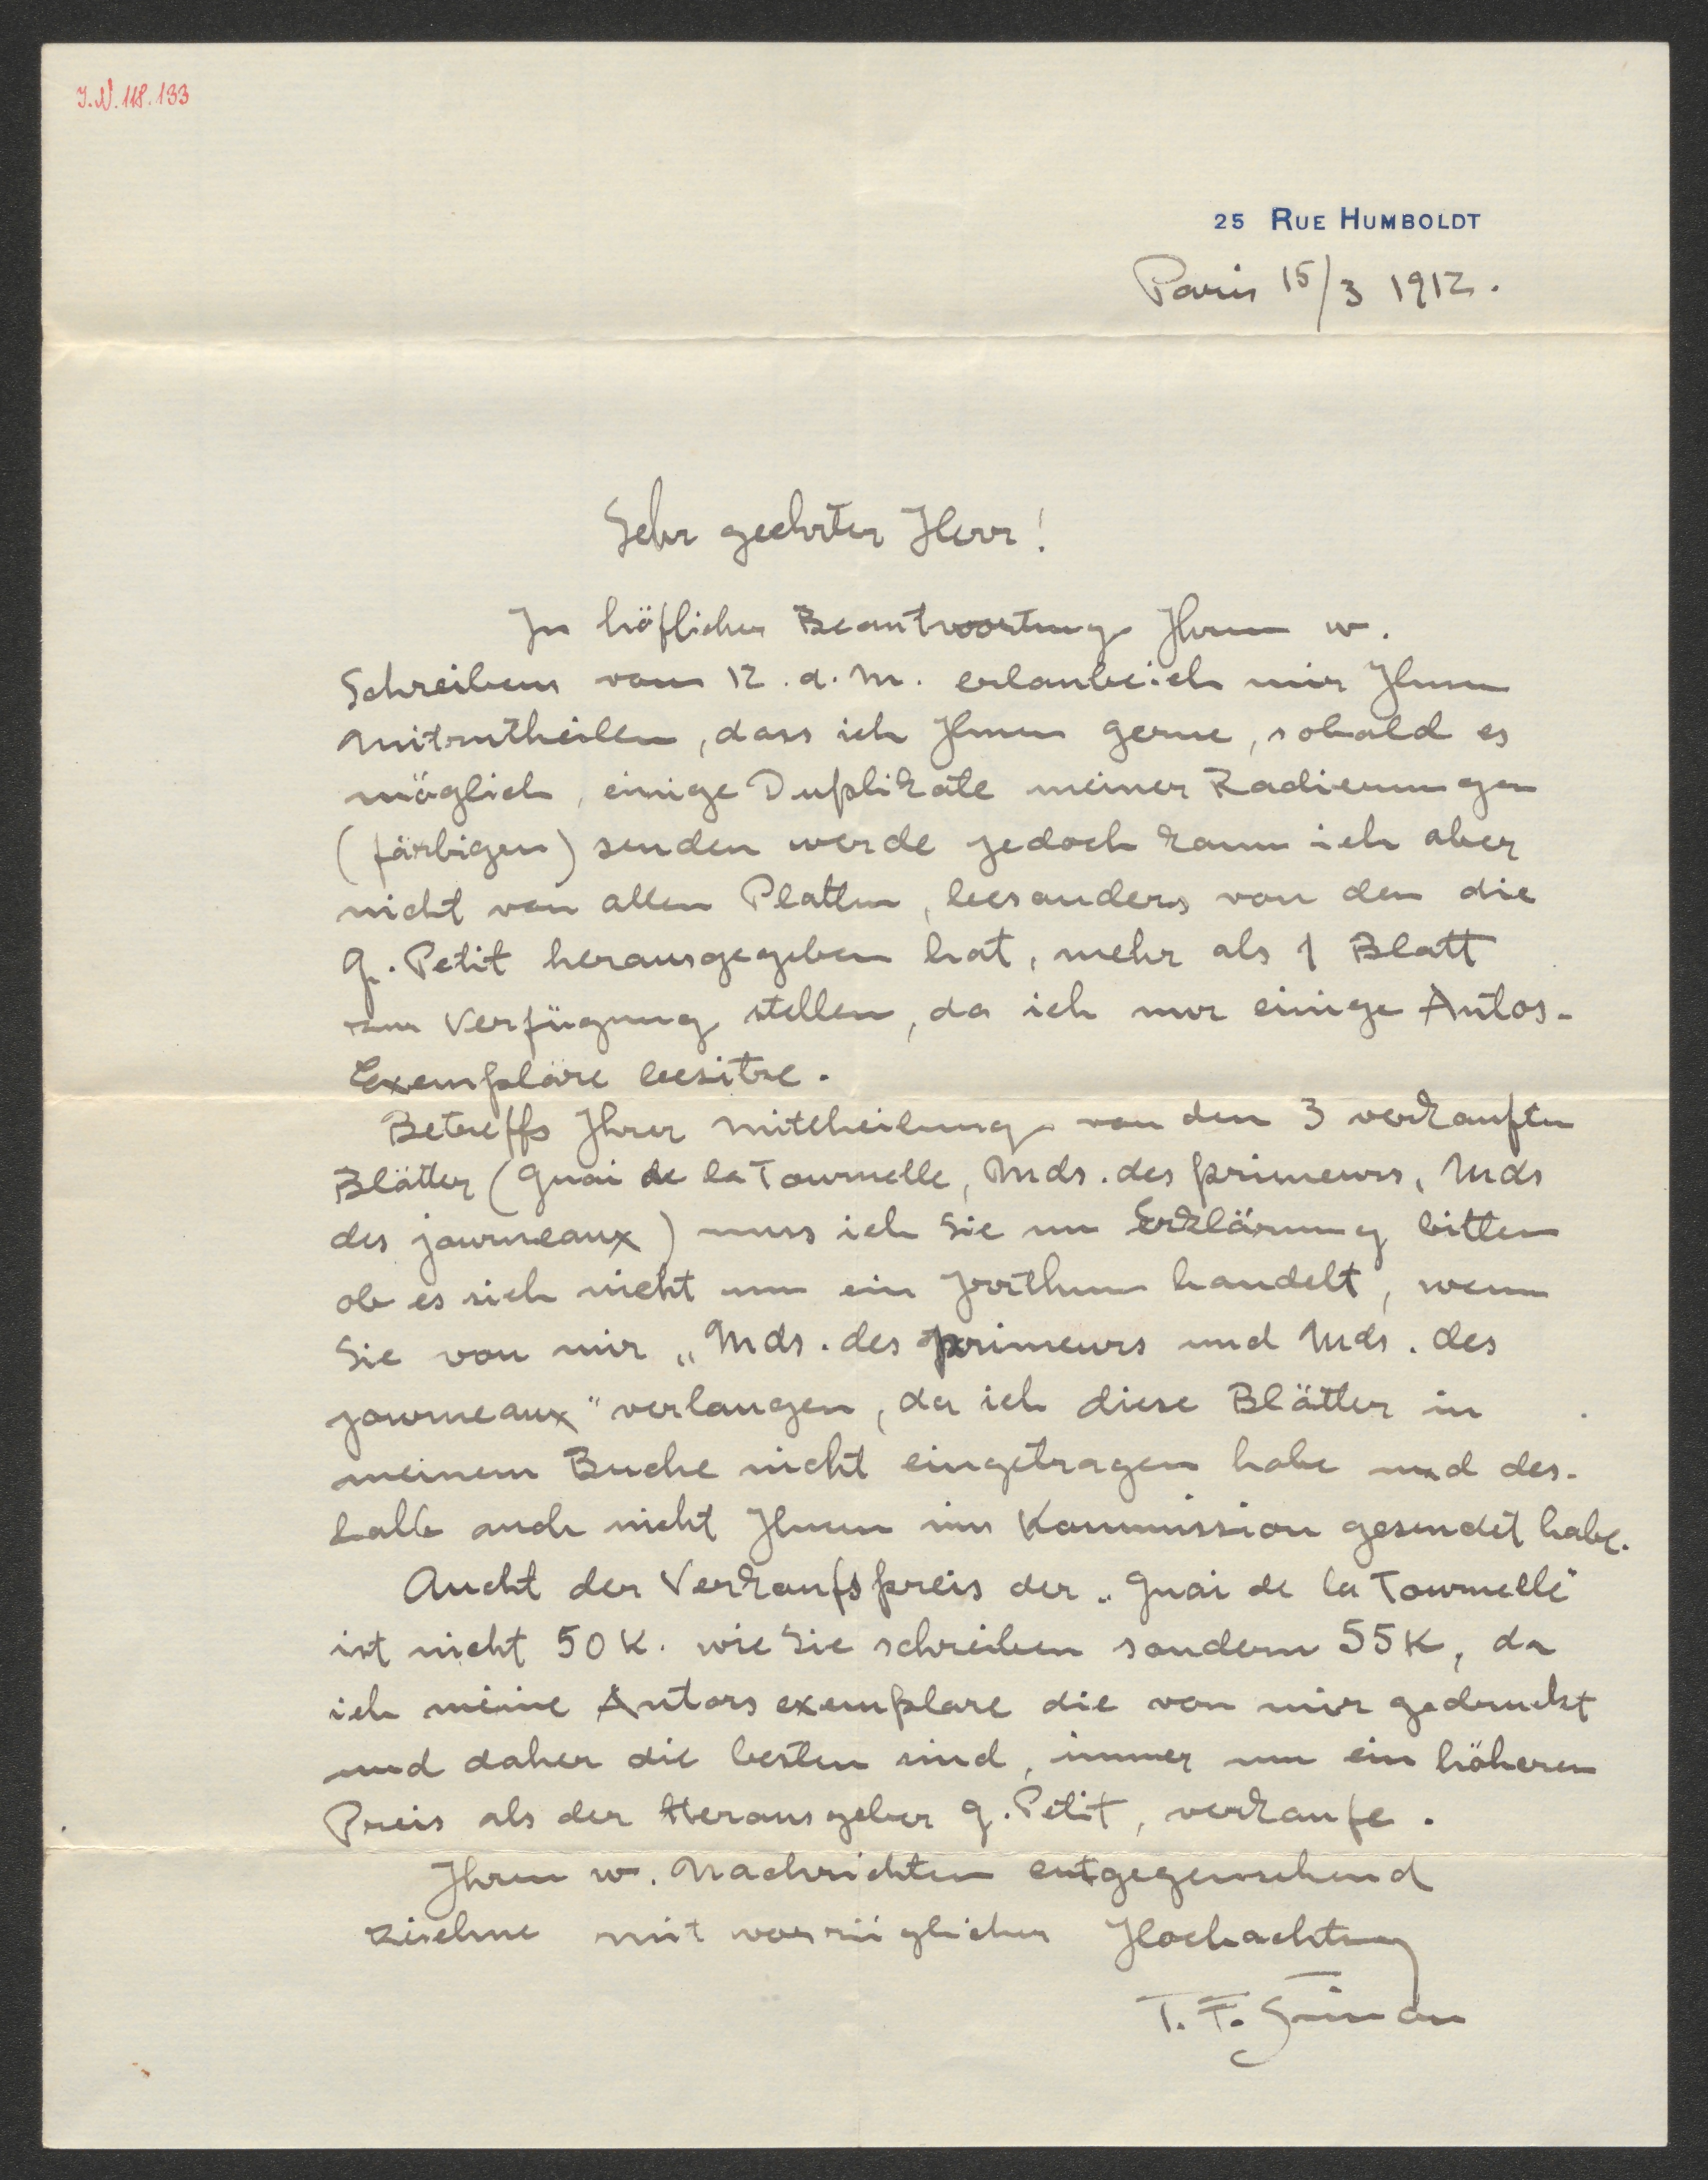 J.N. 118.133
25 RUE HUMBOLDT
Paris 15/3 1912.
Sehr geehrter Herr!
In höflicher Beantwortung Ihren w.
Schreibens vom 12. d. M. erlaube ich mir Ihnen
mitzutheilen, dass ich Ihnen gerne, sobald es
möglich, einige Duplikate meiner Radierungen
(färbigen) senden werde jedoch kann ich aber
nicht von allen Platten, besonders von den die
G. Petit herausgegeben hat, mehr als 1 Blatt
zur Verfügung stellen, da ich nur einige Autos-
Exempläre besitze.
Betreffs Ihrer Mittheilung von den 3 verkauften
Blätter (Quai de la Tournelle, Mds. des primeurs, Mds
des journeaux) muss ich Sie um Erklärung bitten
ob es sich nicht um ein Irrthum handelt, wenn
Sie von mir „Mds. des primeurs und Mds. des
journeaux" verlangen, da ich diese Blätter in
meinem Buche nicht eingetragen habe und des-
halb auch nicht Ihnen im Kommission gesendet habe.
Aucht der Verkaufspreis der „Quai de la Tournelle"
ist nicht 50 K. wie Sie schreiben sondern 55 K, da
ich meine Autors exemplare die von mir gedruckt
und daher die besten sind, immer um ein höheren
Preis als der Herausgeber G. Petit, verkaufe.
Ihren w. Nachrichten entgegensehend
zeichne mit vorzüglicher Hochachtung
T. F. Šimon